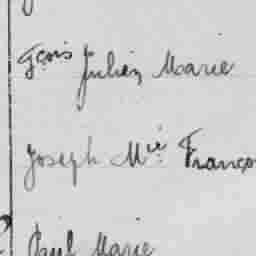 Fçois Julien Marie
Joseph Mie Franço
Paul Marie